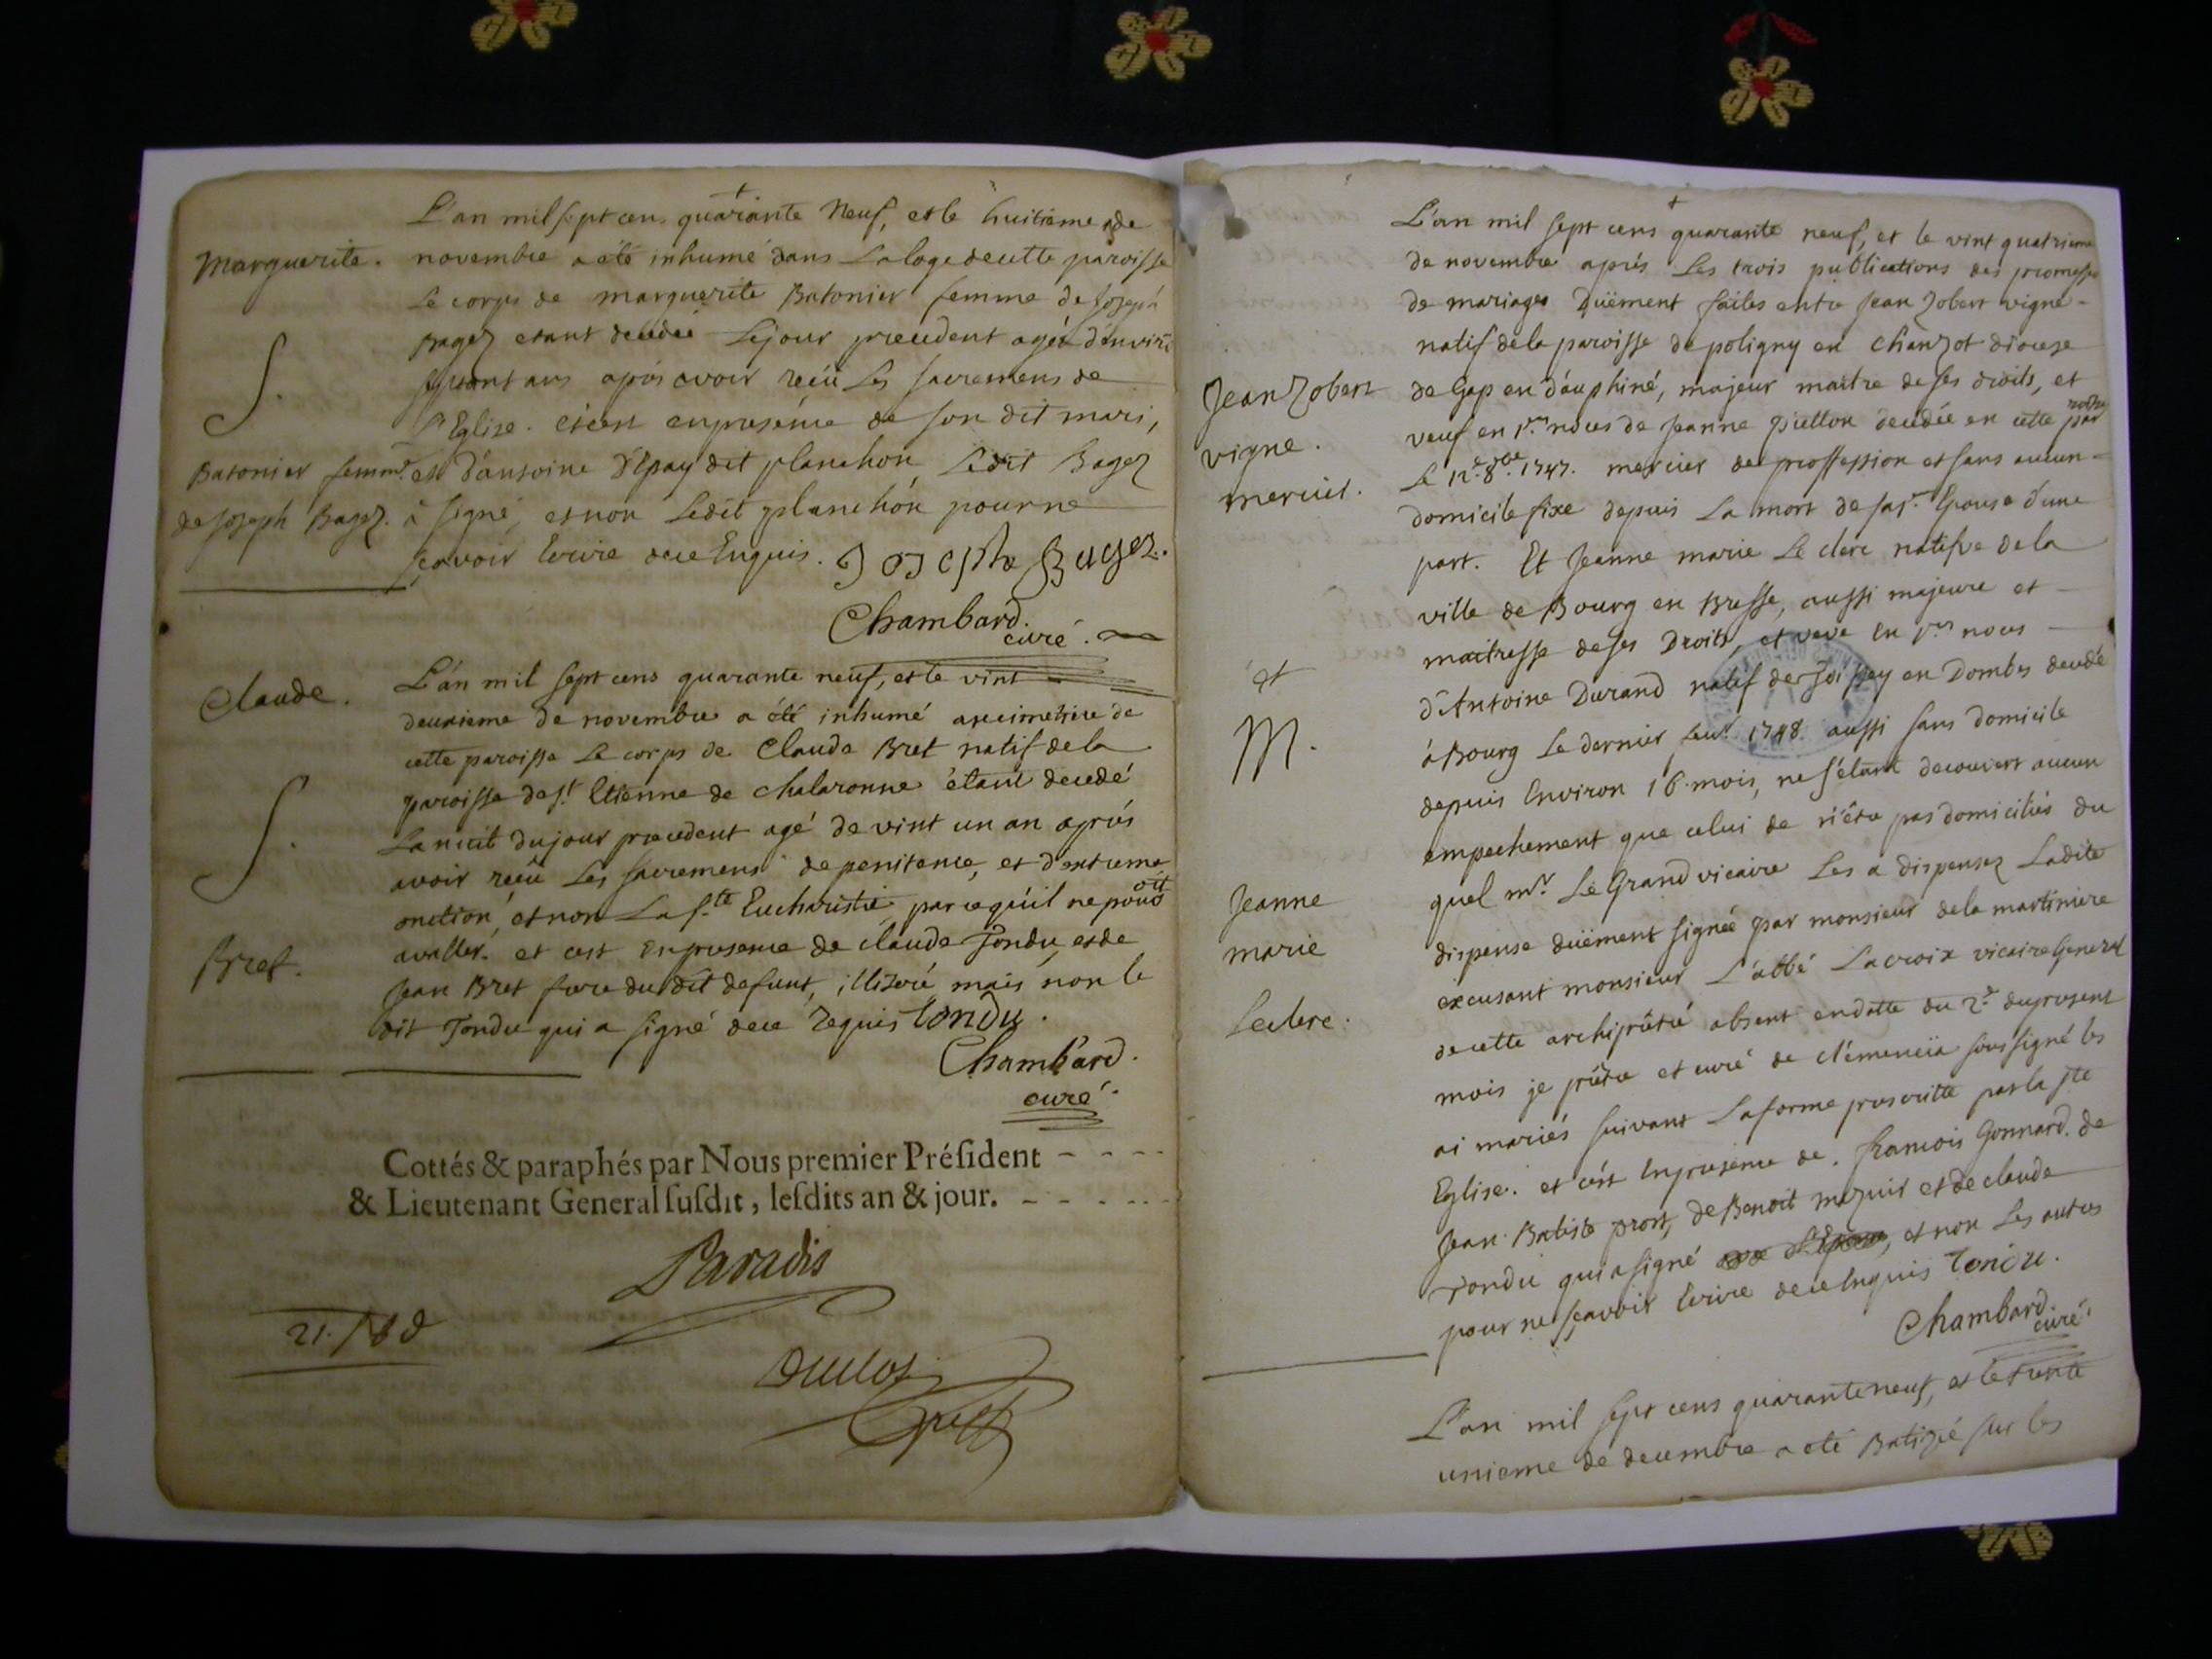 L'an mil sept cens quarante Neuf, et le huitieme de
Marguerite. novembre a été inhumé dans La loge de cette paroisse
Le corps de marguerite Batonier femme de Joseph
Bagez etant decedée Le jour precedent agée d'environ
ans aprés avoir reçû Les sacremens de
S.
L'Eglise. et c'est en presence de son dit mari,
Batonier femme et d'antoine D'Epay dit planchon Ledit Bagez
de Joseph Bagez. à signé, et non Ledit planchon pour ne
sçavoir Ecrire de ce Enquis. Joseph Bagez.
Chambard.
curé.
Claude. L'an mil sept cens quarante neuf, et le vint
deuxieme de novembre a été inhumé au cimetiere de
cette paroisse Le corps de Claude Bret natif de la
paroisse de st Etienne de chalaronne étant decedé
S. La nuit du jour precedent agé de vint un an aprés
avoir reçû Les sacremens de penitence, et d'extreme
onction, et non La ste Eucharistie parce qu'il ne pouvoit
avaller. et c'est En presence de claude Tondu, et de
Bret. Jean Bret frere du dit defunt, illiteré, mais non le
dit Tondu qui a signé de ce Requis tondu.
Chambard.
curé.
Cottés & paraphés par Nous premier Président
& Lieutenant General susdit, lesdits an & jour.
Paradis
L'an mil sept cens quarante neuf, et le vint quatrieme
de novembre aprés Les trois publications des promesses
de mariages Düement faites entre Jean Jobert vigne
natif de la paroisse de poligny en Chanzot diocese
Jean Jobert de Gap en dauphiné, majeur maitre de ses droits, et
vigne. veuf en pres noces de Jeanne piétton decedée en cette notre par
mercier. Le 12e 8bre 1747. mercier de proffession et sans aucun
domicile fixe depuis La mort de sa pr. Epouse d'une
part. Et Jeanne marie Le clerc natifve de la
ville de Bourg en Bresse, aussi majeure et
maitresse de ses Droits, et veve en pres noces
et d'Antoine Durand natif de Toissey en Dombes decedé
M. à Bourg Le dernier 1748 aussi sans domicile
depuis Environ 16 mois, ne s'étant decouvert aucun
empechement que celui de n'être pas domiciliés du
Jeanne quel mr. Le Grand vicaire Les a dispensez Ladite
marie dispense düement signée par monsieur de la martiniere
Leclerc. excusant monsieur L'abbé Lacroix vicaire General
de cette archiprêtré absent en datte du 2e du present
mois je prêtre et curé de clemencia soussigné les
ai mariés suivant La forme prescritte par la ste
Eglise. et c'est En presence de francois Gonnard. de
Jean Batiste prost, de Benoit mercier et de claude
Tondu qui a signé et non Les autres
pour ne sçavoir Ecrire de ce Enquis tondu.
Chambard.
curé.
L'an mil sept cens quarante neuf, et le trente
unieme de decembre a été Batizé sur les